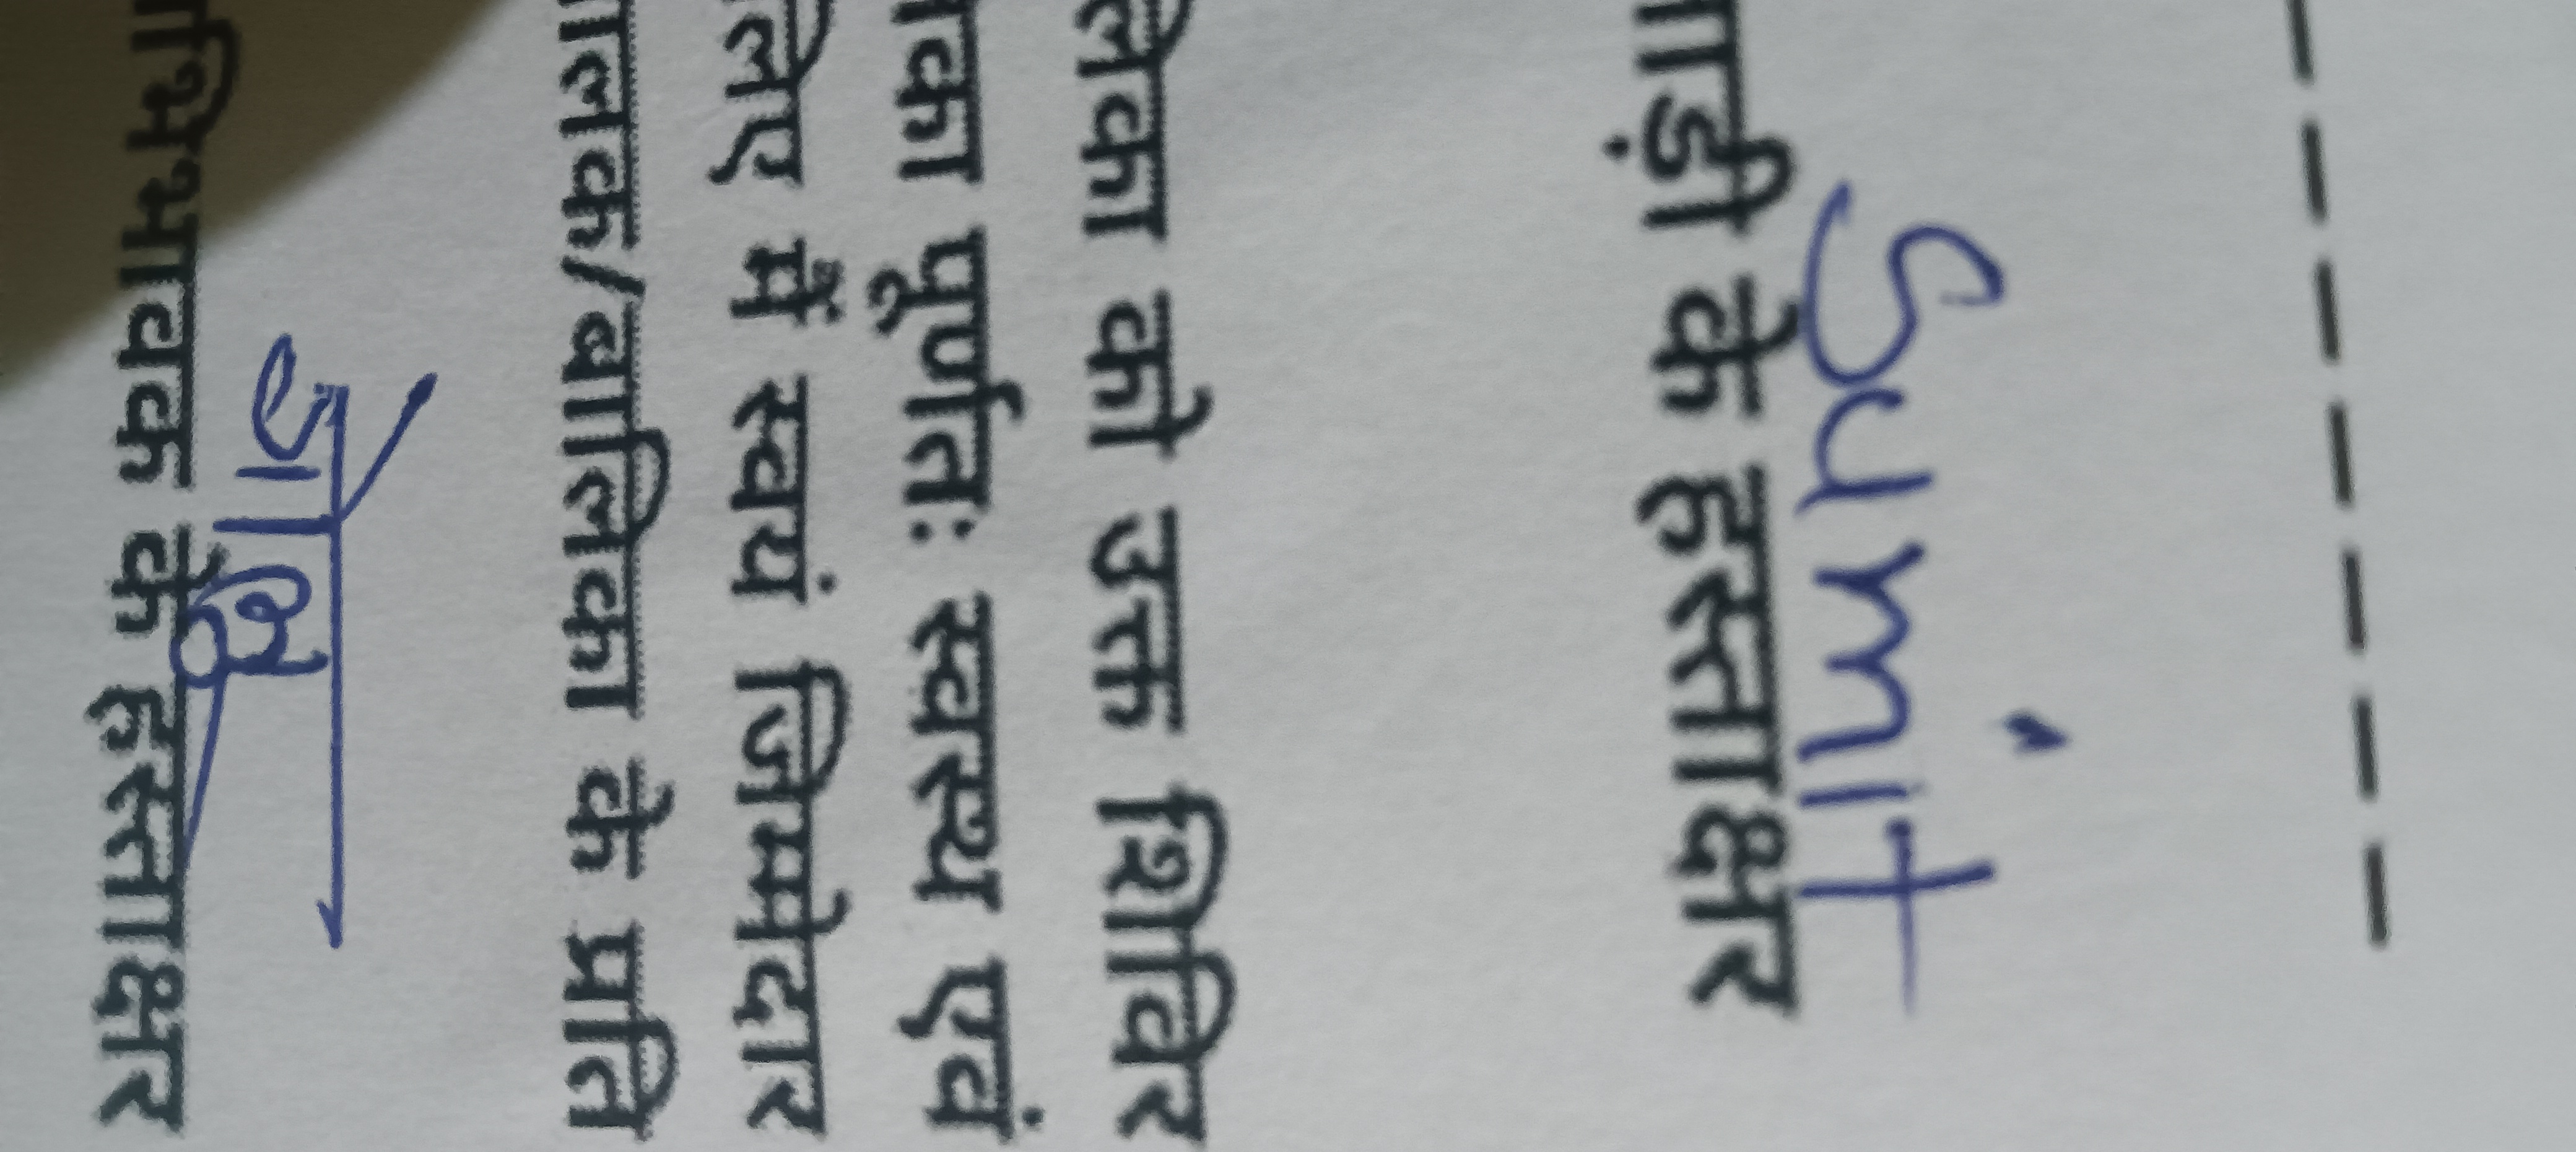 Sumit
खिलाड़ी के हस्ताक्षर
लिका को उक्त शिविर
का पूर्णतः स्वस्थ एवं
लिए में स्वयं जिम्मेदार
लक/बालिका के प्रति
अभिभावक के हस्ताक्षर